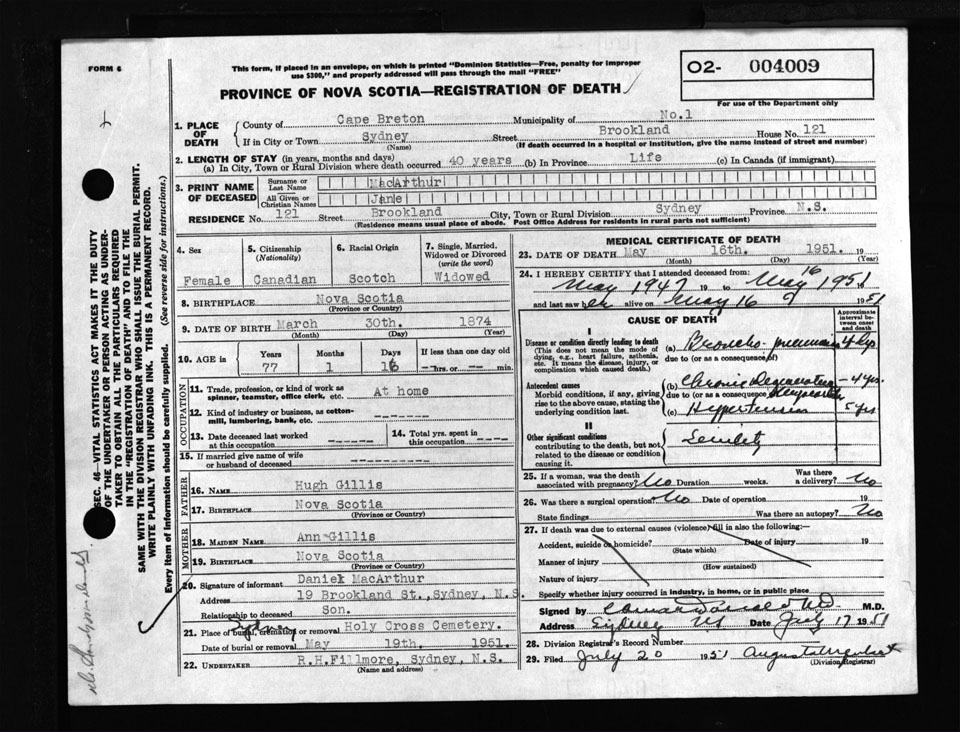 FORM 6
This form, if placed in an envelope, on which is printed "Dominion Statistics—Free, penalty for improper
use $300," and properly addressed will pass through the mail "FREE"
PROVINCE OF NOVA SCOTIA—REGISTRATION OF DEATH
O2- 004009
For use of the Department only
1. PLACE OF DEATH County of Cape Breton Municipality of No.1
If in City or Town Sydney Street Brookland House No. 121
(Name) (If death occurred in a hospital or institution, give the name instead of street and number)
2. LENGTH OF STAY (in years, months and days)
(a) In City, Town or Rural Division where death occurred 40 years (b) In Province Life (c) In Canada (if immigrant)
3. PRINT NAME OF DECEASED Surname or Last Name MacArthur
All Given or Christian Names Jane
RESIDENCE No. 121 Street Brookland City, Town or Rural Division Sydney Province N.S.
(Residence means usual place of abode. Post Office Address for residents in rural parts not sufficient)
4. Sex Female
5. Citizenship (Nationality) Canadian
6. Racial Origin Scotch
7. Single, Married, Widowed or Divorced (write the word) Widowed
8. BIRTHPLACE Nova Scotia
(Province or Country)
9. DATE OF BIRTH March 30th. 1874
(Month) (Day) (Year)
10. AGE in Years Months Days If less than one day old
77 1 16 --hrs. or --min.
OCCUPATION
11. Trade, profession, or kind of work as spinner, teamster, office clerk, etc. At home
12. Kind of industry or business, as cotton-mill, lumbering, bank, etc. -----
13. Date deceased last worked at this occupation ------ 14. Total yrs. spent in this occupation ----
15. If married give name of wife or husband of deceased ------
FATHER
16. NAME Hugh Gillis
17. BIRTHPLACE Nova Scotia
(Province or Country)
MOTHER
18. MAIDEN NAME Ann Gillis
19. BIRTHPLACE Nova Scotia
(Province or Country)
20. Signature of informant Daniel MacArthur
Address 19 Brookland St., Sydney, N.S.
Relationship to deceased Son.
21. Place of burial, cremation or removal Sydney Holy Cross Cemetery.
Date of burial or removal May 19th. 1951.
22. UNDERTAKER R.H.Fillmore, Sydney, N.S.
(Name and address)
MEDICAL CERTIFICATE OF DEATH
23. DATE OF DEATH May 16th. 1951. 19
(Month) (Day) (Year)
24. I HEREBY CERTIFY that I attended deceased from:
May 1947 19 to May 16 1951
and last saw her alive on May 16 1951
CAUSE OF DEATH
Approximate interval between onset and death
I
Disease or condition directly leading to death
(This does not mean the mode of dying, e.g., heart failure, asthenia, etc. It means the disease, injury, or complication which caused death.)
(a) Broncho-pneumonia 4 dys
due to (or as a consequence of)
Antecedent causes
Morbid conditions, if any, giving rise to the above cause, stating the underlying condition last.
(b) Chronic Degenerative 4 yrs.
due to (or as a consequence of)
(c) Hypertension 5 yrs
II
Other significant conditions
contributing to the death, but not related to the disease or condition causing it.
Senility
25. If a woman, was the death associated with pregnancy? No Duration weeks. Was there a delivery? No
26. Was there a surgical operation? No Date of operation 19
State findings Was there an autopsy? No
27. If death was due to external causes (violence) fill in also the following:—
Accident, suicide or homicide? Date of injury 19
(State which)
Manner of injury
(How sustained)
Nature of injury
Specify whether injury occurred in industry, in home, or in public place
Signed by M.D.
Address Sydney NS Date July 17 1951
28. Division Registrar's Record Number
29. Filed July 20 1951
(Division Registrar)
SEC. 46—VITAL STATISTICS ACT MAKES IT THE DUTY
OF THE UNDERTAKER OR PERSON ACTING AS UNDER-
TAKER TO OBTAIN ALL THE PARTICULARS REQUIRED
IN THE "REGISTRATION OF DEATH" AND TO FILE THE
SAME WITH THE DIVISION REGISTRAR WHO SHALL ISSUE THE BURIAL PERMIT.
WRITE PLAINLY WITH UNFADING INK. THIS IS A PERMANENT RECORD.
Every item of Information should be carefully supplied. (See reverse side for instructions.)